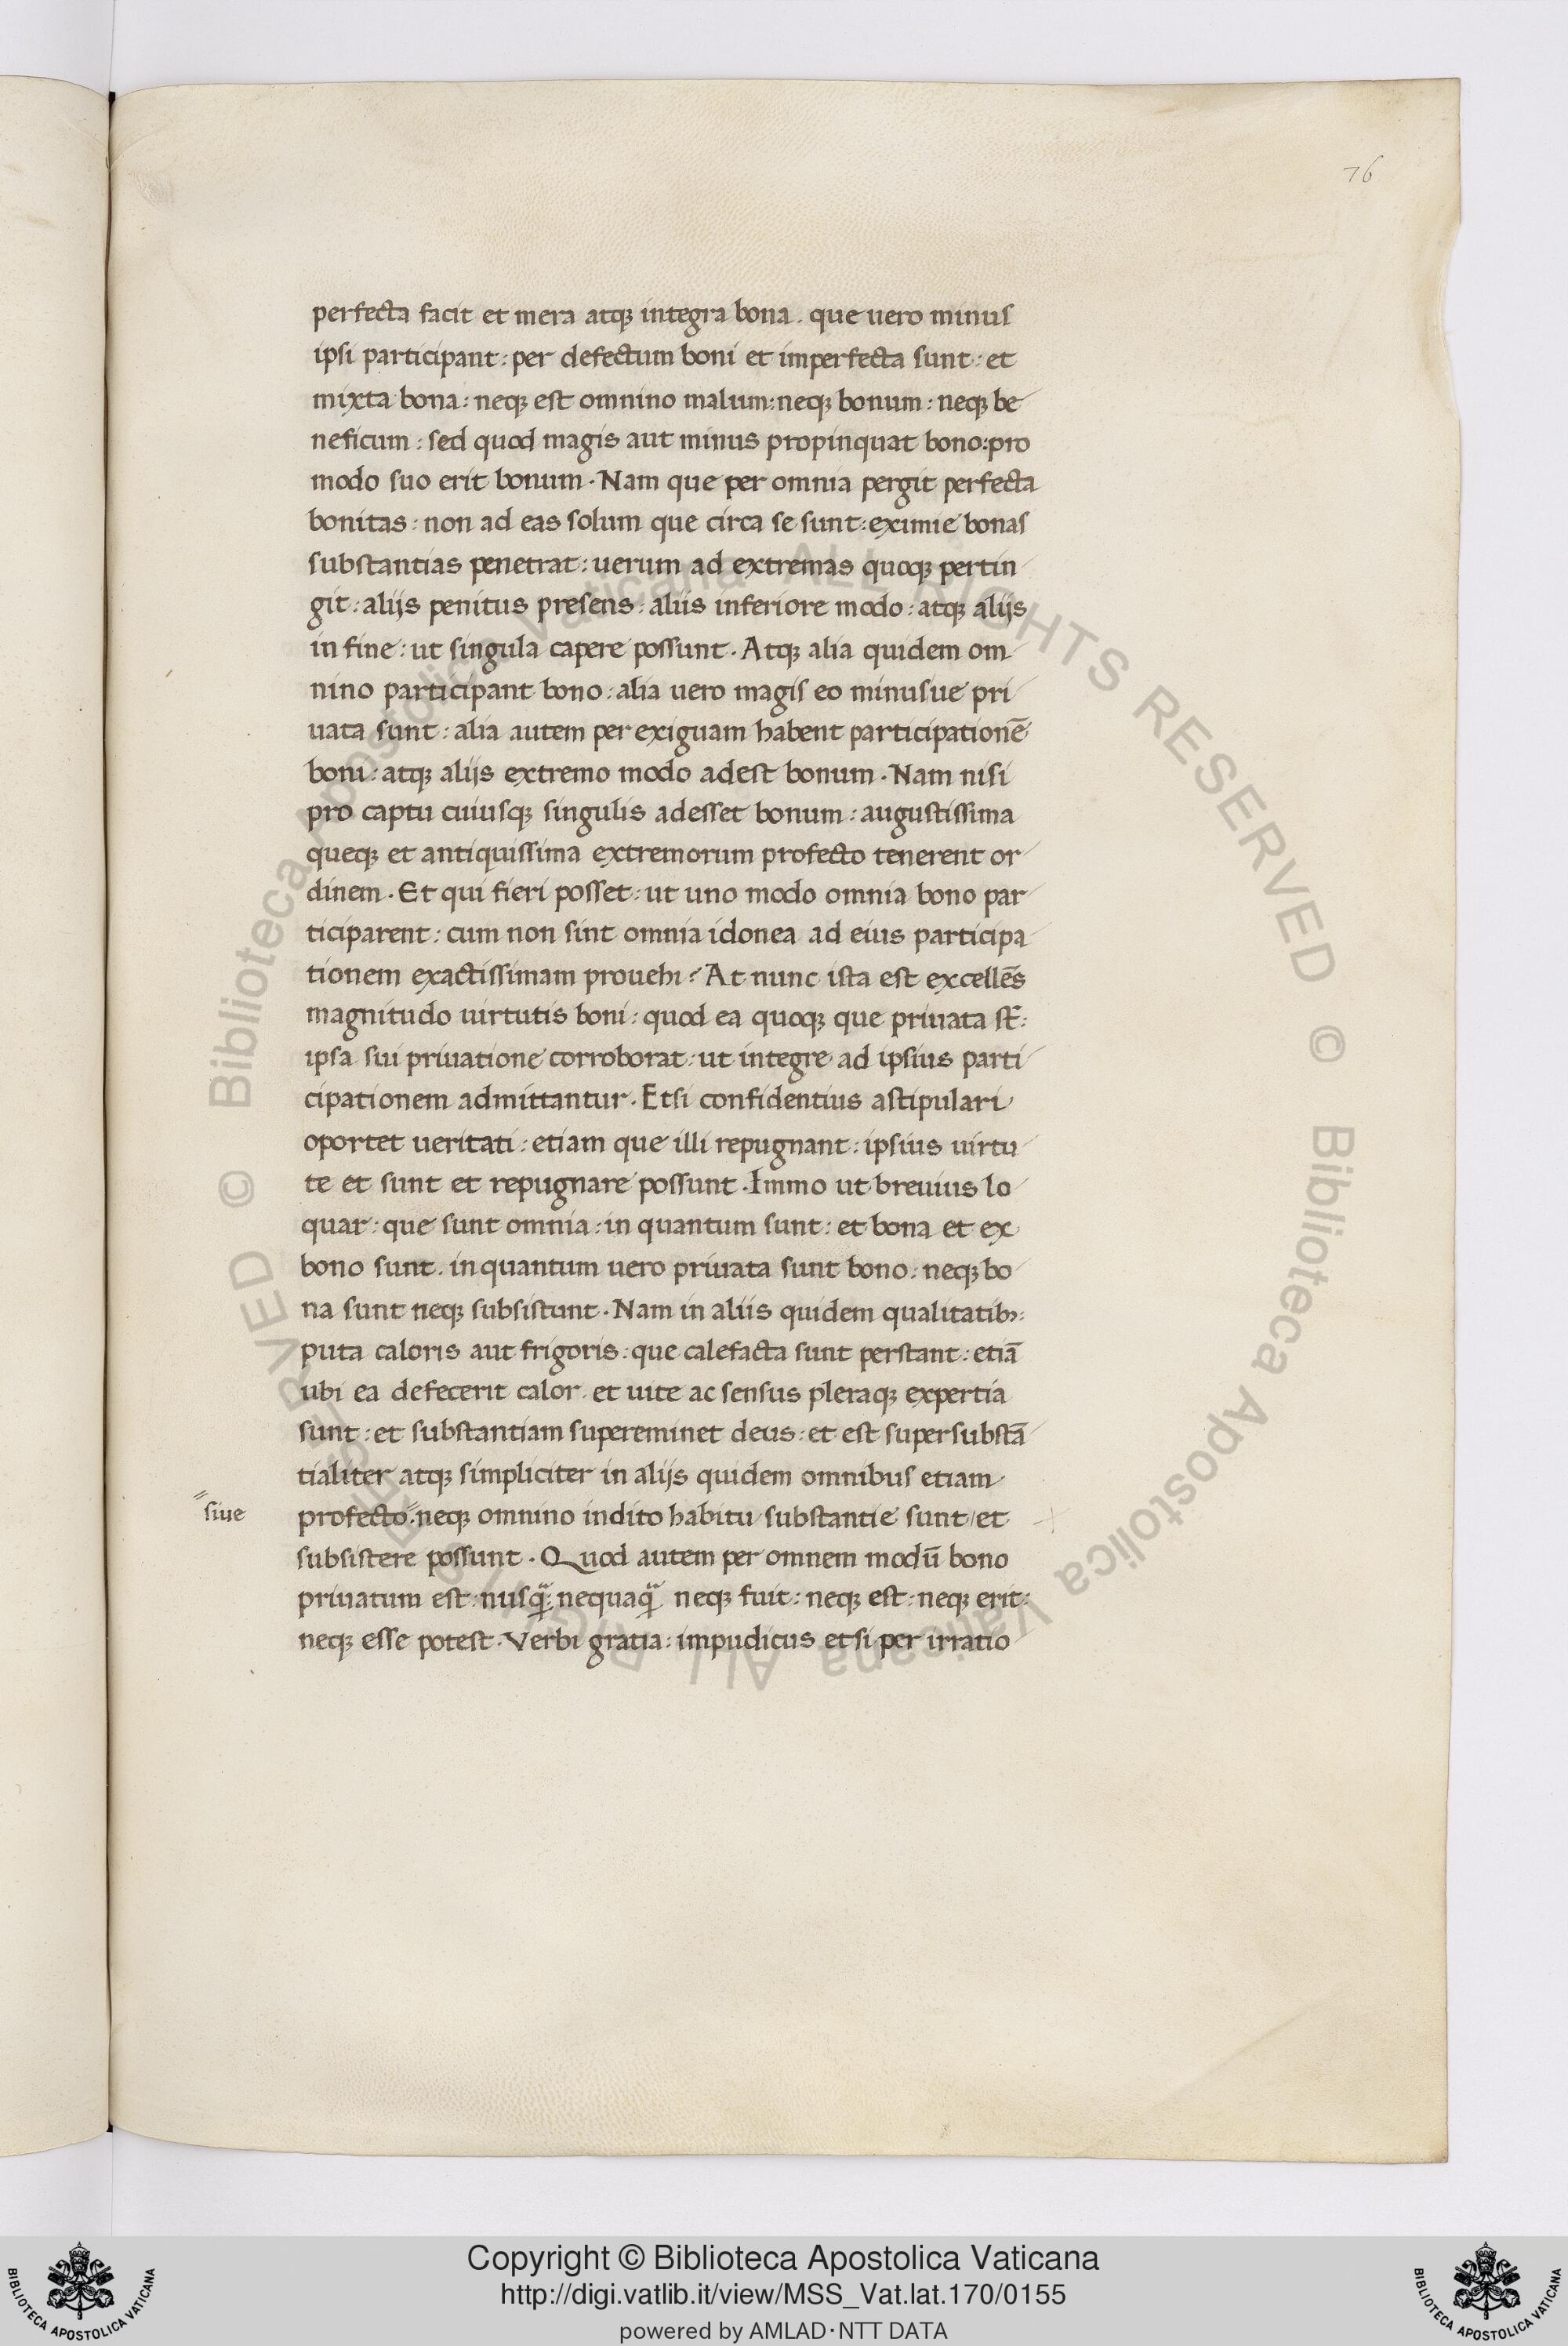 76
perfecta facit et mera atqꝫ integra bona. que uero minus
ipsi participant: per defectum boni et imperfecta sunt: et
mixta bona: neqꝫ est omnino malum: neqꝫ bonum: neqꝫ be
neficum: sed quod magis aut minus propinquat bono: pro
modo suo erit bonum. Nam que per omnia pergit perfecta
bonitas: non ad eas solum que circa se sunt: eximie bonas
substantias penetrat: uerum ad extremas quoqꝫ pertin
git: alijs penitus presens: aliis inferiore modo: atqꝫ alijs
in fine: ut singula capere possunt. Atqꝫ alia quidem om
nino participant bono: alia uero magis eo minusue pri
uata sunt: alia autem per exiguam habent participationē
boni: atqꝫ alijs extremo modo adest bonum. Nam nisi
pro captu cuiusqꝫ singulis adesset bonum: augustissima
queqꝫ et antiquissima extremorum profecto tenerent or
dinem. Et qui fieri posset: ut uno modo omnia bono par
ticiparent: cum non sint omnia idonea ad eius participa
tionem exactissimam prouehi? At nunc ista est excellēs
magnitudo uirtutis boni: quod ea quoqꝫ que priuata st̄:
ipsa sui priuatione corroborat: ut integre ad ipsius parti
cipationem admittantur. Etsi confidentius astipulari
oportet ueritati: etiam que illi repugnant: ipsius uirtu
te et sunt et repugnare possunt. Immo ut breuius lo
quar: que sunt omnia: in quantum sunt: et bona et ex
bono sunt. in quantum uero priuata sunt bono: neqꝫ bo
na sunt neqꝫ subsistunt. Nam in aliis quidem qualitatibꝫ:
puta caloris aut frigoris: que calefacta sunt perstant: etiā
ubi ea defecerit calor. et uite ac sensus pleraqꝫ expertia
sunt: et substantiam supereminet deus: et est supersubstā
tialiter atqꝫ simpliciter in alijs quidem omnibus etiam
siue
profecto. neqꝫ omnino indito habitu substantie sunt et
subsistere possunt. Quod autem per omnem modū bono
priuatum est: nusqᷓ: nequaqᷓ neqꝫ fuit: neqꝫ est: neqꝫ erit:
neqꝫ esse potest. Verbi gratia: impudicus etsi per irratio
© Biblioteca Apostolica Vaticana ALL RIGHTS RESERVED
© Biblioteca Apostolica Vaticana ALL RIGHTS RESERVED
Copyright © Biblioteca Apostolica Vaticana
http://digi.vatlib.it/view/MSS_Vat.lat.170/0155
powered by AMLAD·NTT DATA
BIBLIOTECA APOSTOLICA VATICANA
BIBLIOTECA APOSTOLICA VATICANA